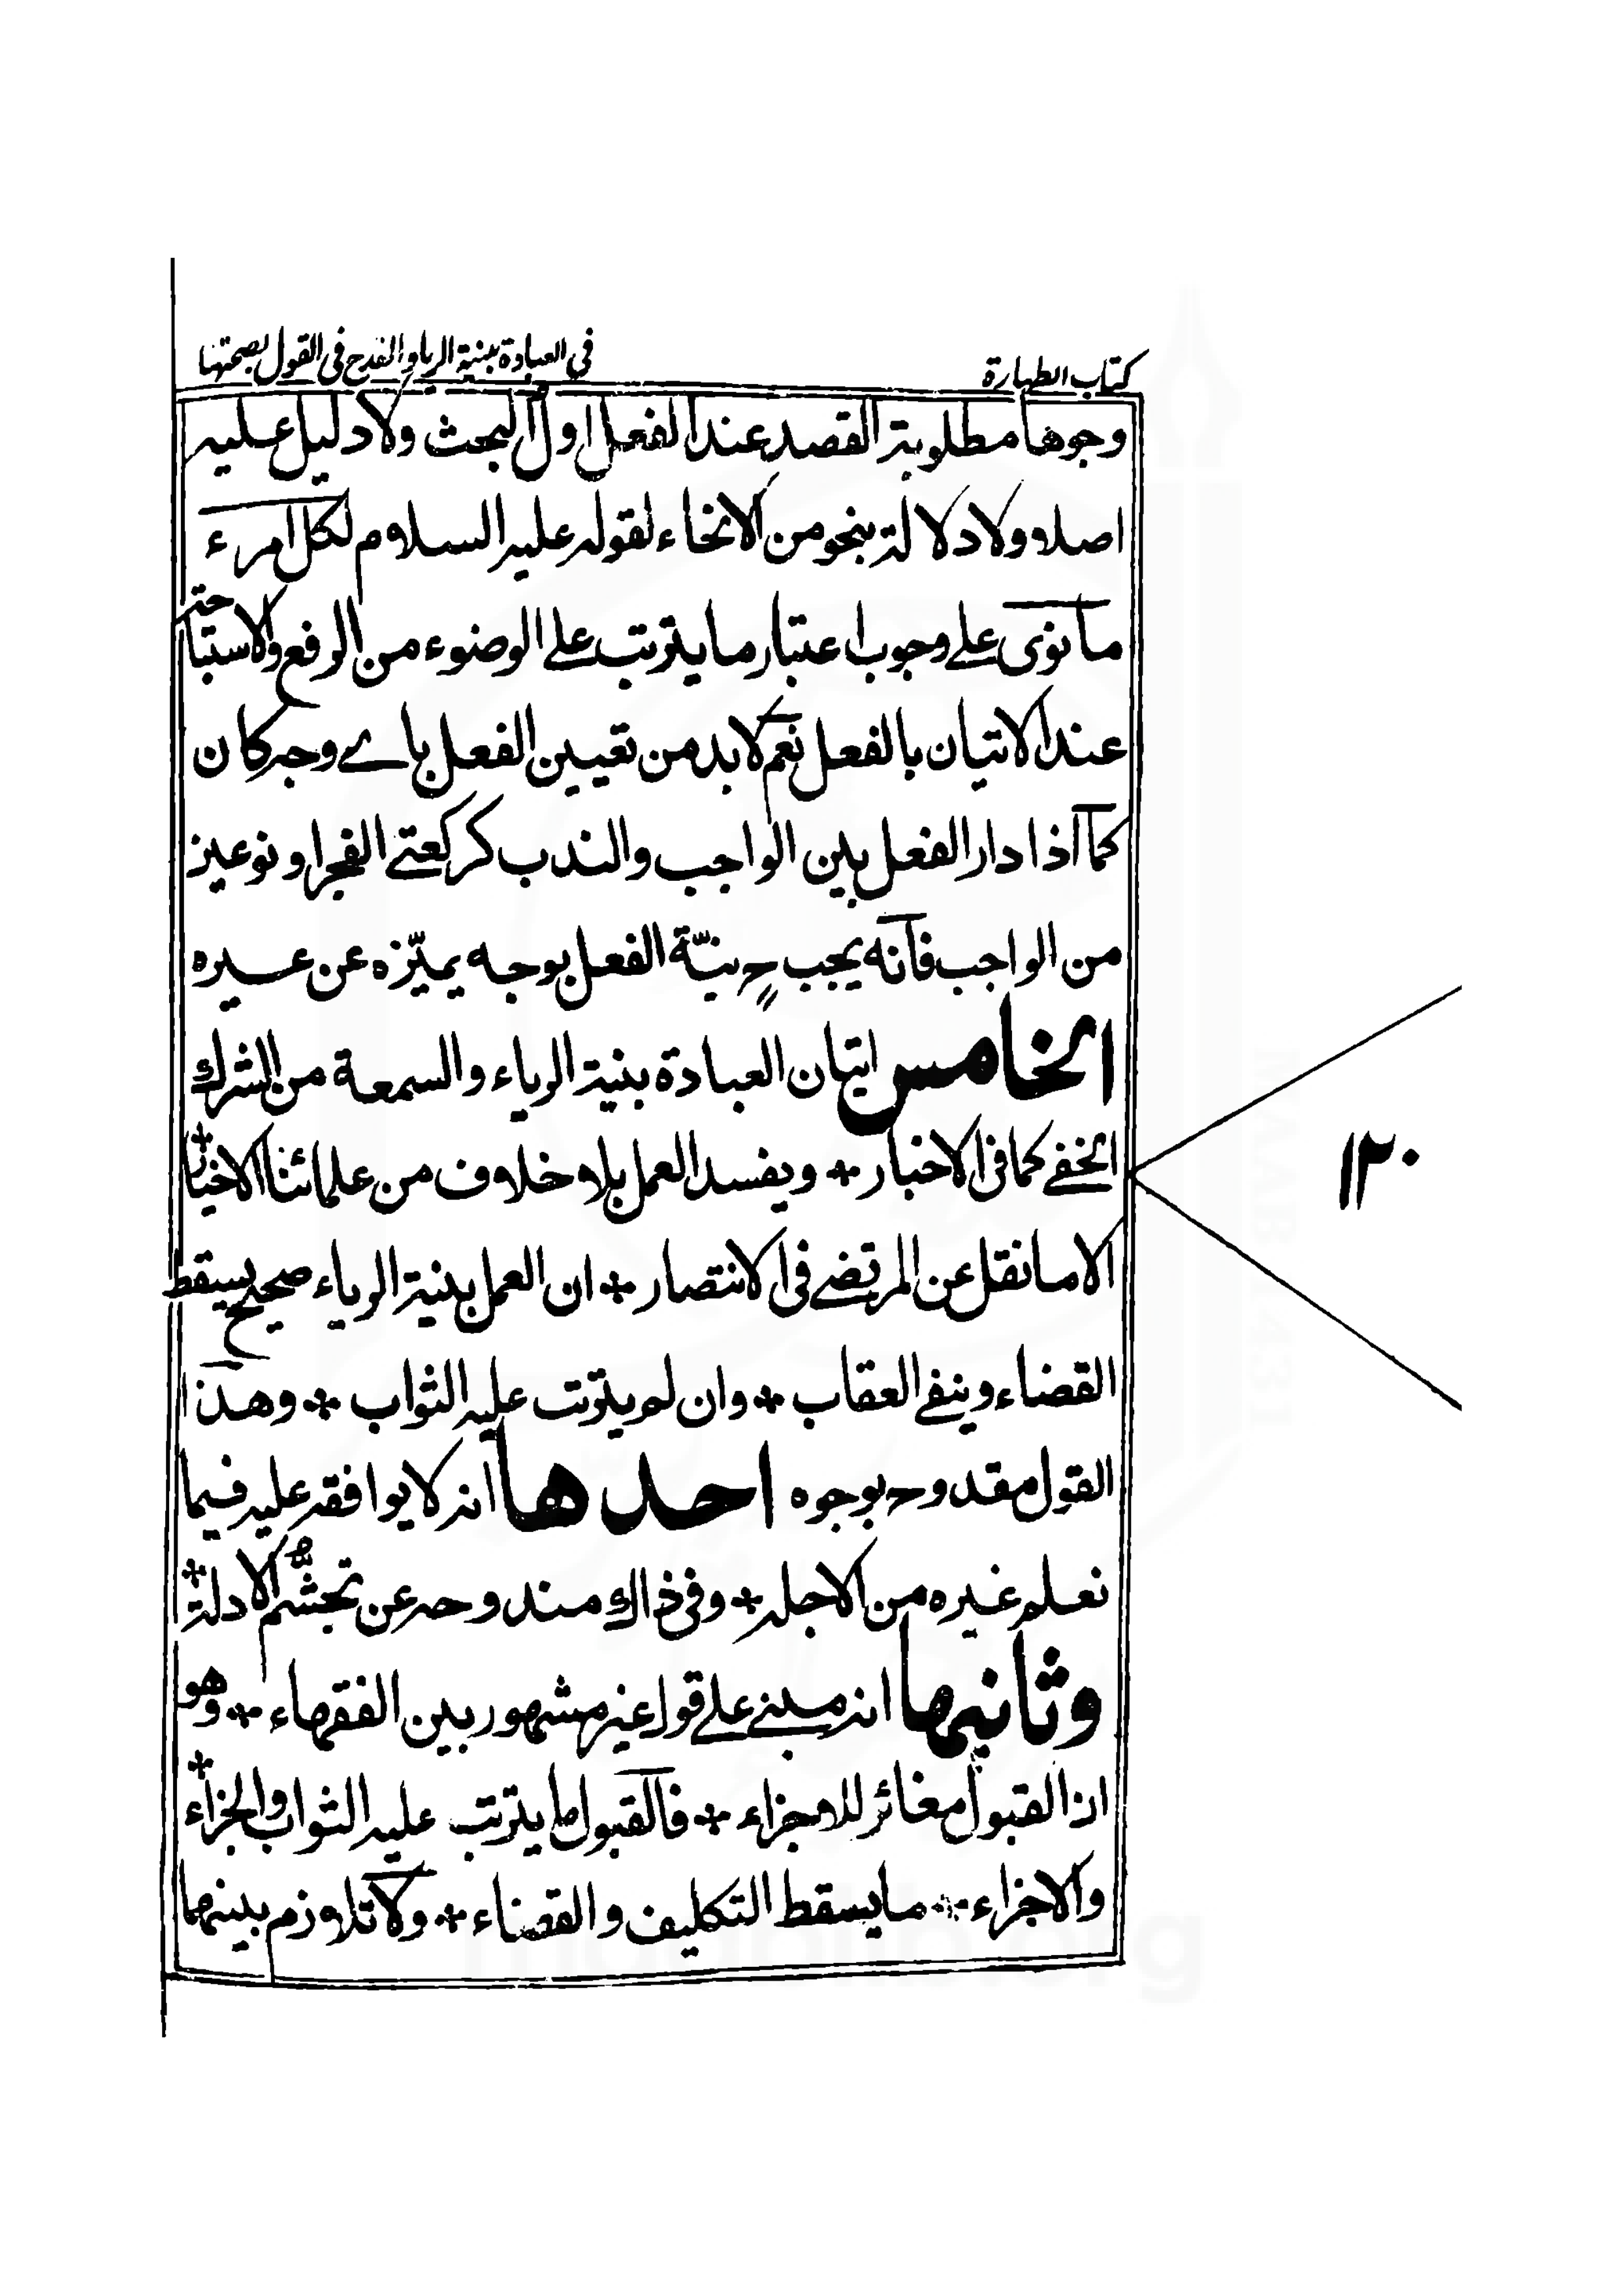 كتاب الطهارة
في العبادة بنية الريا والقدح في القول بصحتها
وجوها مطلوبة القصد عند الفعل اول البحث ولا دليل عليه
اصلا ولا دلالة بنحو من الانحاء لقوله عليه السلام لكل امرء
ما نوى على وجوب اعتبار ما يترتب على الوضوء من الرفع والاستباحة
عند الاتيان بالفعل نعم لا بد من تعيين الفعل باي وجه كان
كما اذا دار الفعل بين الواجب والندب كركعتي الفجر او نوعين
من الواجب فانه يجب ح نيّة الفعل بوجه يميّزه عن غيره
الخامس اتيان العبادة بنية الرياء والسمعة من الشرك
الخفي كما في الاخبار * ويفسد العمل بلا خلاف من علمائنا الاخيار *
الا ما نقل عن المرتضى في الانتصار * ان العمل بنية الرياء صحيح يسقط
القضاء وينفي العقاب * وان لم يترتب عليه الثواب * وهذا
القول مقدوح بوجوه احدها انه لا يوافقه عليه فيما
نعلم غيره من الاجلة * وفي ذلك مندوحة عن تجشّم الادلة *
وثانيها انه مبني على قول غير مشهور بين الفقهاء * وهو
ان القبول مغائر للاجزاء * فالقبول ما يترتب عليه الثواب والجزاء *
والاجزاء * ما يسقط التكليف والقضاء * ولا تلازم بينهما
١٢٠